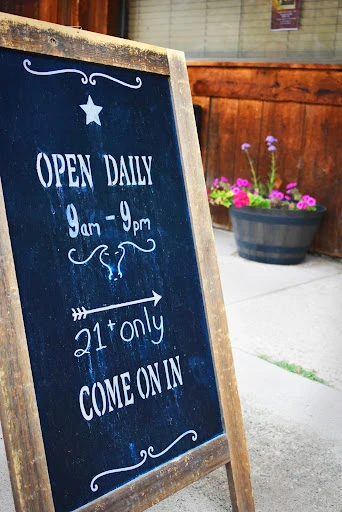 OPEN DAILY
9am - 9pm
21+ only
COME ON IN